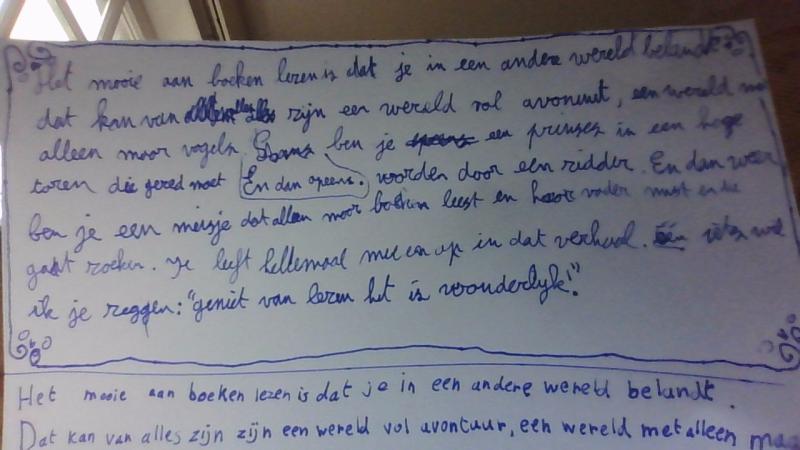 Het mooie aan boeken lezen is dat je in een andere wereld belandt
dat kan van alles zijn een wereld vol avonuut, een wereld m
alleen maar vogels. Soms ben je een prinses in een hoge
toren die gered moet worden door een ridder. En dan weer
En dan opeens.
ben je een meisje dat alleen maar boeken leest en haar vader mist en die
gaat zoeken. Je leeft hellemaal mee en op in dat verhaal. Één iets wil
ik je zeggen: "geniet van lezen het is wonderlijk!"
Het mooie aan boeken lezen is dat je in een andere wereld belandt.
Dat kan van alles zijn zijn een wereld vol avontuur, een wereld met alleen maa